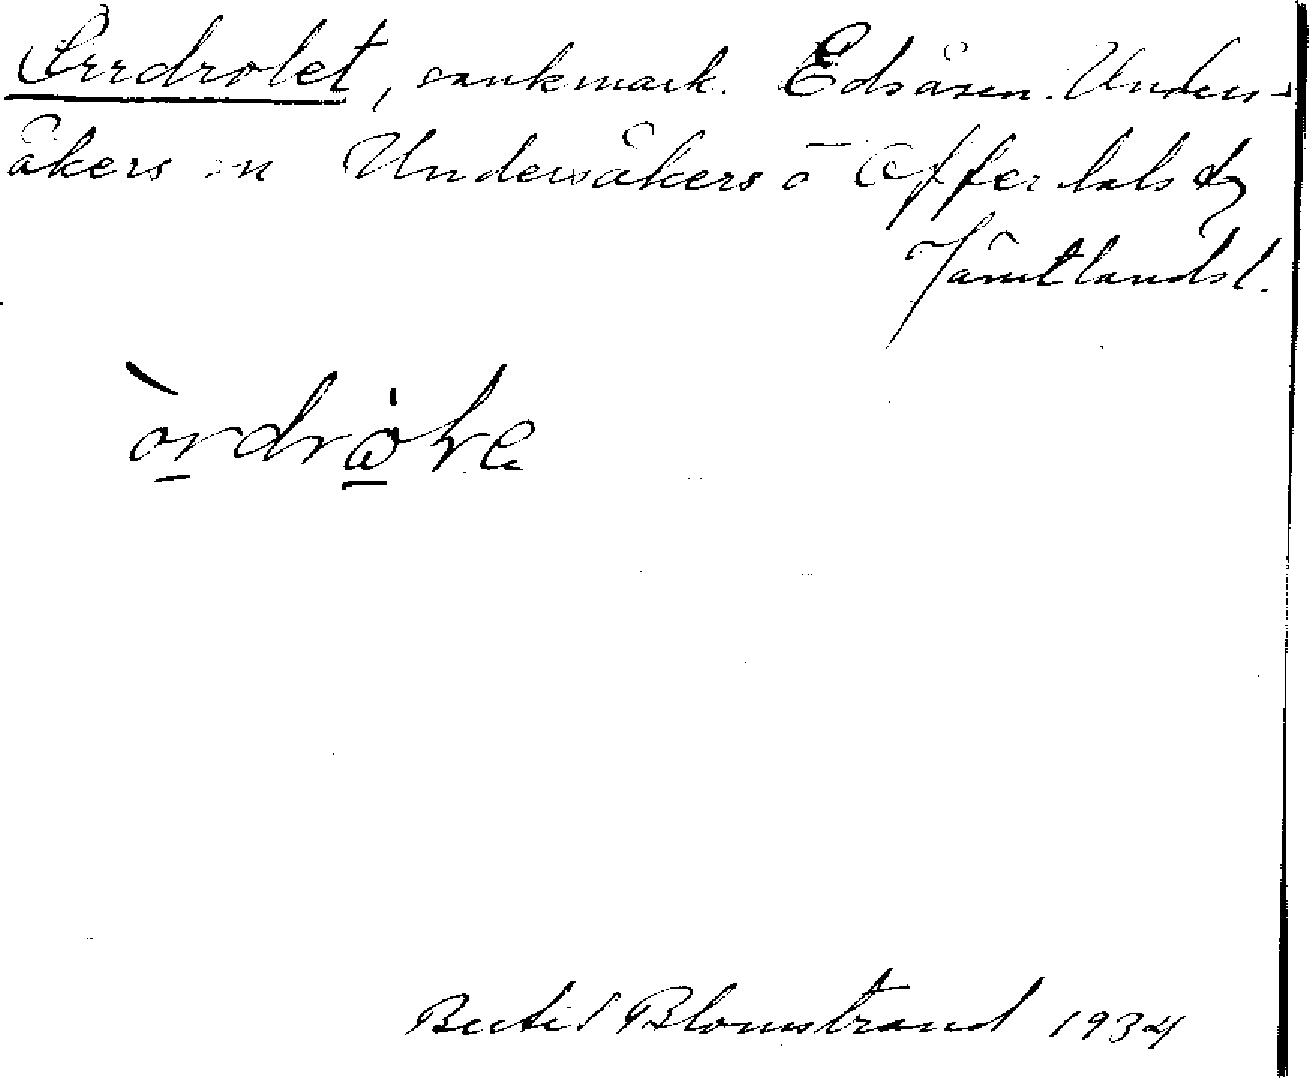 Örrdrolet, sankmark. Edsåsen. Unders-
åkers sn Undersåkers o Offerdals tg
Jämtlands l.
Bertil Blomstrand 1934